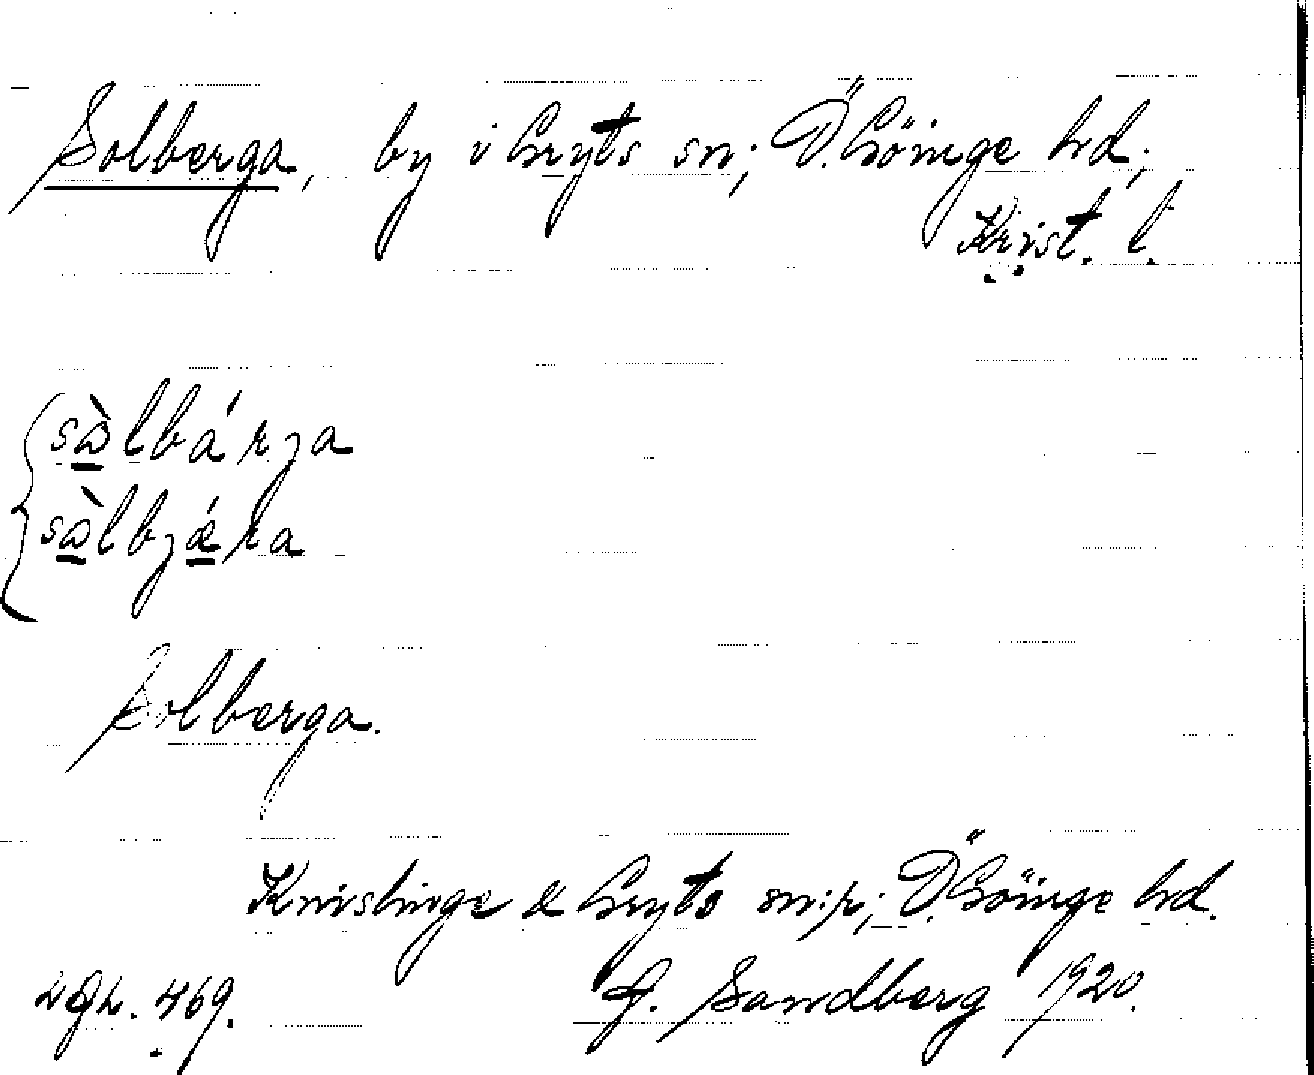 Solberga, by i Gryts sn; Ö. Göinge hd;
Krist. l.
sòlbárja
sòlbjǽra
Solberga.
Knislinge & Gryts sn:r; Ö. Göinge hd.
Sandberg 1920.